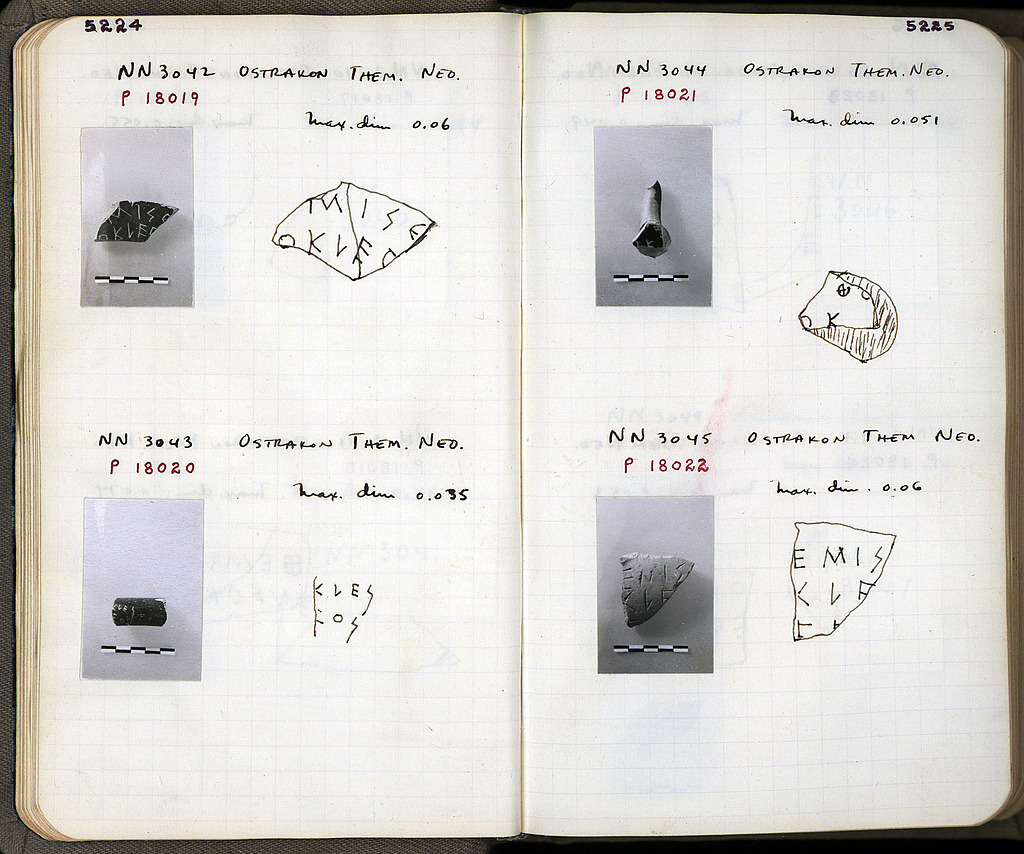 5224
NN 3042 OSTRAKON THEM. NEO.
P 18019
Max. dim 0.06
ΜΙS
ΟΚLΕΟ
NN 3043 OSTRAKON THEM. NEO.
P 18020
Max. dim 0.035
ΚLΕS
ΕΟS
5225
NN 3044 OSTRAKON THEM. NEO.
P 18021
Max. dim 0.051
⊕
ΟΚ
NN 3045 OSTRAKON THEM NEO.
P 18022
Max. dim. 0.06
ΕΜΙS
ΚLΕ